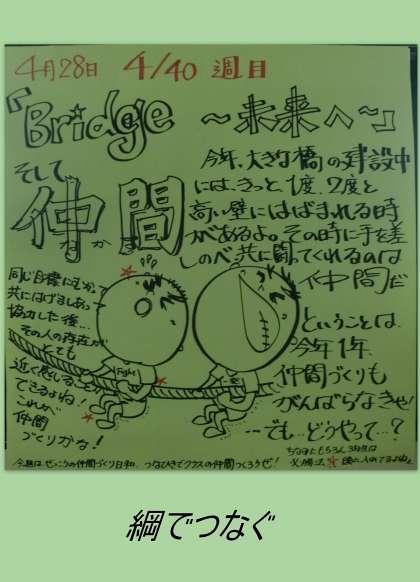 4月28日 4/40 週目
「Bridge ～未来へ～」
そして
仲間
なかま
今年、大きな橋の建設中
には、きっと、1度、2度と
高い壁にはばまれる時
があるよ。その時に手を差
しのべ、共に闘ってくれるのは
仲間だ
ということは、
今年1年、
仲間づくりも
がんばらなきゃ!
…でも…どうやって…?
同じ目標にむかって
共にはげましあって
協力した後…
その人の存在が
とても
近く感じること
できるよね!
これが
仲間
づくりかな!
Fight!
今週は ぜっこうの仲間づくり日和。つなひきでクラスの仲間つくろうぜ!
ちなみにもちろん3年生は
綱でつなぐ